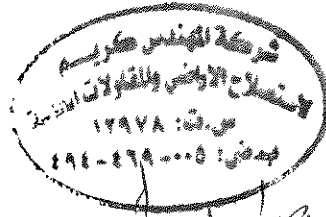 شركة المهندس كريم
لاستصلاح الاراضى والمقاولات
س.ت: ١٢٩٧٨
٤٩٤-٤٦٩-٠٠٥